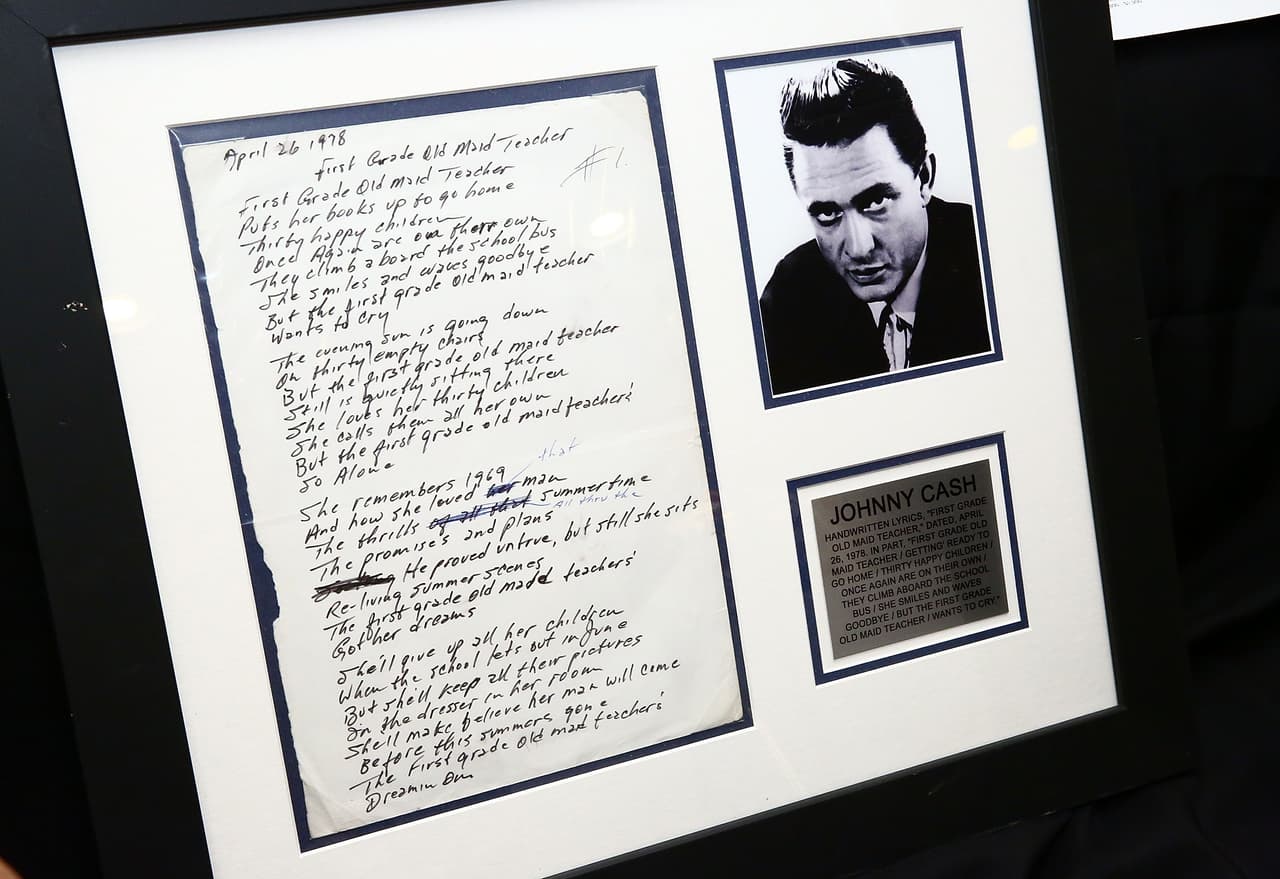 April 26 1978
First Grade Old Maid Teacher
#1.
First Grade Old Maid Teacher
Puts her books up to go home
Thirty happy children
Once Again are own there own
They climb aboard the school bus
She smiles and waves goodbye
But the first grade old maid teacher
Wants to cry
The evening sun is going down
On thirty empty chairs
But the first grade old maid teacher
Still is quietly sitting there
She loves her thirty children
She calls them all her own
But the first grade old maid teachers'
So Alone
She remembers 1969
that
And how she loved her man
The thrills of all that summertime
All thru the
The promises and plans
He proved untrue, but still she sits
Re-living summer scenes
The first grade old maid teachers'
Got her dreams
She'll give up all her children
When the school lets out in June
But she'll keep all their pictures
In the dresser in her room
She'll make believe her man will come
Before this summers gone
The First grade old maid teachers'
Dreamin On
JOHNNY CASH
HANDWRITTEN LYRICS, "FIRST GRADE
OLD MAID TEACHER," DATED, APRIL
26, 1978. IN PART, "FIRST GRADE OLD
MAID TEACHER / GETTING' READY TO
GO HOME / THIRTY HAPPY CHILDREN /
ONCE AGAIN ARE ON THEIR OWN /
THEY CLIMB ABOARD THE SCHOOL
BUS / SHE SMILES AND WAVES
GOODBYE / BUT THE FIRST GRADE
OLD MAID TEACHER / WANTS TO CRY."